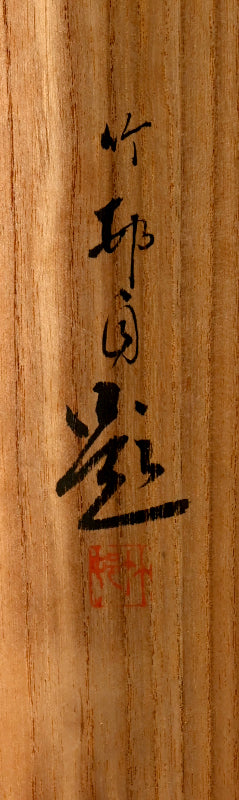 竹邨自題